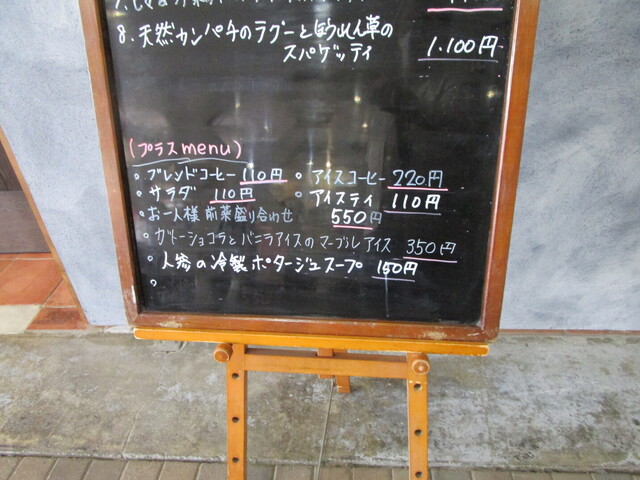 8. 天然カンパチのラグーとほうれん草の
スパゲッティ 1.100円
(プラスmenu)
。ブレンドコーヒー 110円 。アイスコーヒー 220円
。サラダ 110円 。アイスティ 110円
。お一人様 前菜盛り合わせ 550円
。ガトーショコラとバニラアイスのマーブルアイス 350円
。人参の冷製ポタージュスープ 150円
。